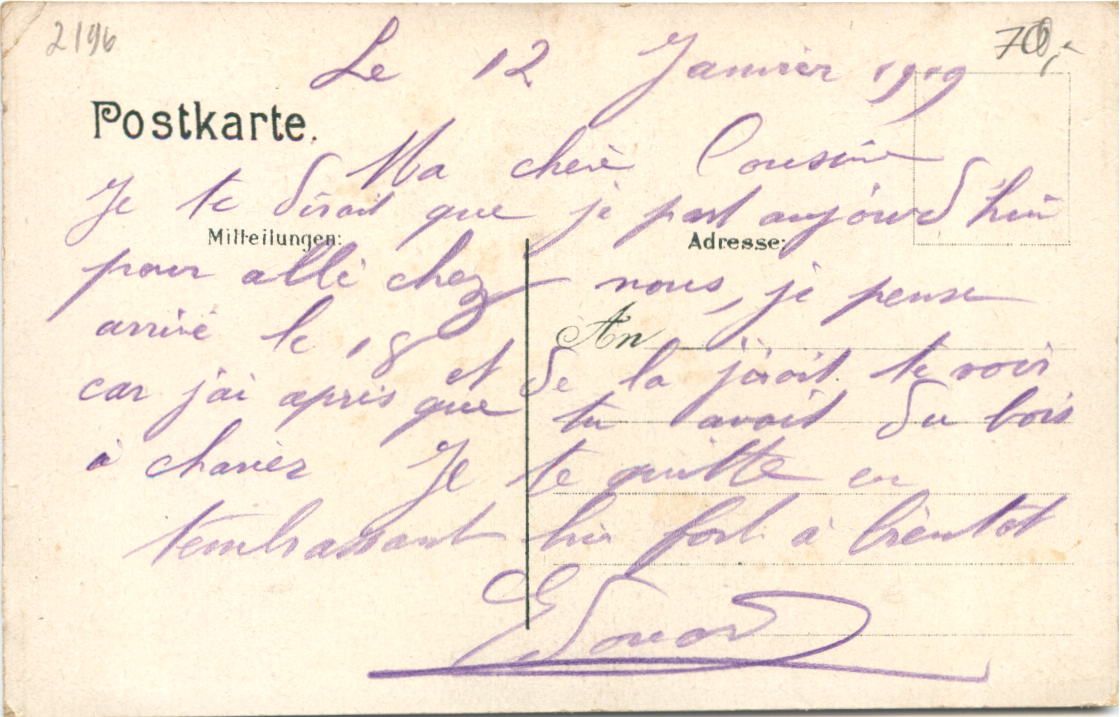 2196
70,-
Le 12 Janvier 1919
Postkarte.
Ma chere Cousine
Je te dirait que je part aujourd'hui
Mitteilungen:
Adresse:
pour allé chez nous, je pense
An
arrivé le 18 et de la j'irait te voir
car j'ai apris que tu avait du bois
à chariez Je te quitte en
t'embrassant bien fort à bientot
Edouard